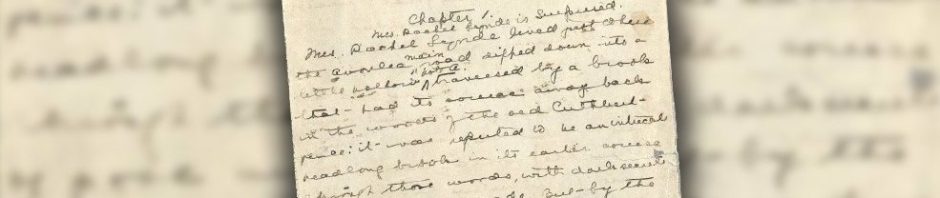 Chapter 1.
Mrs. Rachel Lynde is Surprised.
Mrs. Rachel Lynde lived just where
the Avonlea main road dipped down into a
little hollow Note A traversed by a brook
that had its source away back
in the woods of the old Cuthbert
place: it was reputed to be an intricate
headlong brook in its earlier course
through those woods, with dark secrets
but by the